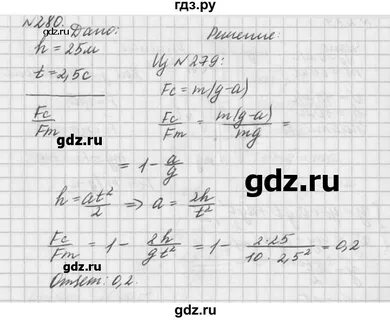 №280.
Дано:
h = 25м
t = 2,5с
Fc/Fт
Решение:
Из №279:
Fc = m(g-a)
Fc/Fт = m(g-a)/mg =
= 1 - a/g
h = at²/2 ⇒ a = 2h/t²
Fc/Fт = 1 - 2h/gt² = 1 - 2·25/10·2,5² = 0,2
Ответ: 0,2.
gdz.ru
gdz.ru
gdz.ru
gdz.ru